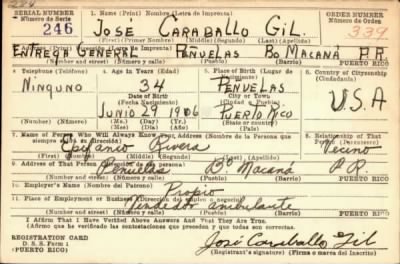 SERIAL NUMBER 1. Name (Print) Nombre (Letra de Imprenta) ORDER NUMBER
Número de Serie Número de Orden
246 JOSÉ CARABALLO GIL. 339
(First) (Primer Nombre) (Middle) (Segundo) (Last) (Apellido)
2. Address (Print) Dirección (Letra de Imprenta)
ENTREGA GENERAL PEÑUELAS BO MACANÁ P.R.
(Number) (Número) (Street) (Calle) (Town) (Pueblo) (Barrio) PUERTO RICO
4. Telephone (Teléfono) 4. Age in Years (Edad) 5. Place of Birth (Lugar de Nacimiento) 6. Country of Citizenship (Ciudadanía)
NINGUNO 34 PEÑUELAS U.S.A
Date of Birth (Town) (Pueblo)
(Fecha Nacimiento)
JUNIO 29 1906 PUERTO RICO
(Number) (Número) (Mo.) (Mes) (Day) (Día) (Yr.) (Año) (Country) (País)
7. Name of Person Who Will Always Know Your Address (Nombre de la Persona que siempre sepa su dirección) 8. Relationship of That Person
Epifanio Rivera Vecino
(First) (Primer) (Middle) (Segundo) (Last) (Apellido)
9. Address of That Person (Dirección de esa Persona)
Peñuelas Bo Macaná P.R.
(Number) (Número) (Street) (Calle) (Town) (Pueblo) (Barrio) PUERTO RICO
10. Employer's Name (Nombre del Patrono)
Propio
11. Place of Employment or Business (Dirección del empleo o negocio)
Vendedor ambulante
(Number) (Número) (Street) (Calle) (Town) (Pueblo) (Barrio) PUERTO RICO
I Affirm That I Have Verified Above Answers and That They Are True.
(Afirmo que he verificado las contestaciones que preceden y que todas son correctas.)
REGISTRATION CARD
D. S. S. Form 1
(PUERTO RICO)
José Caraballo Gil
(Registrant's signature) (Firma o marca del Inscrito)